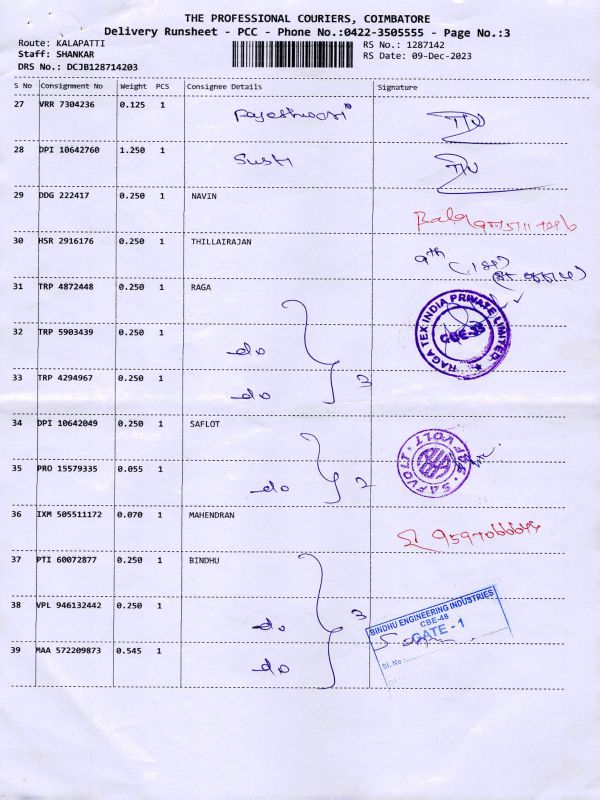 THE PROFESSIONAL COURIERS, COIMBATORE
Delivery Runsheet - PCC - Phone No.:0422-3505555 - Page No.:3
Route: KALAPATTI RS No.: 1287142
Staff: SHANKAR RS Date: 09-Dec-2023
DRS No.: DCJB128714203
S No Consignment No Weight PCS Consignee Details Signature
27 VRR 7304236 0.125 1 Rajeshwari
28 DPI 10642760 1.250 1
29 DDG 222417 0.250 1 NAVIN
Bala
30 HSR 2916176 0.250 1 THILLAIRAJAN 9th
31 TRP 4872448 0.250 1 RAGA
RAGA TEX INDIA PRIVATE LIMITED
CBE-35
32 TRP 5903439 0.250 1 do
33 TRP 4294967 0.250 1 do 3
34 DPI 10642049 0.250 1 SAFLOT
SAFVOLT
35 PRO 15579335 0.055 1 do 2
36 IXM 505511172 0.070 1 MAHENDRAN
37 PTI 60072877 0.250 1 BINDHU
38 VPL 946132442 0.250 1 do 3
BINDHU ENGINEERING INDUSTRIES
CBE-48
GATE - 1
Sl. No
39 MAA 572209873 0.545 1 do